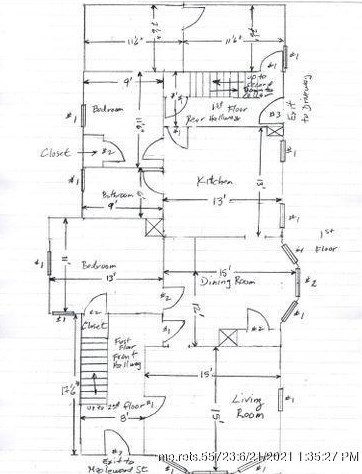 11'6"
11'6"
#1
#1
9'
up to
1st Floor
Rear Hallway
#3
Exit
to Driveway
#1
Bedroom
11'6"
#1
Closet
#2
#1
Kitchen
13'
13'
Bathroom
9'
1st
Floor
11'
Bedroom
13'
#1
15'
Dining Room
#2
#2
12'
#1
Closet
#2
#1
#2
First
Floor
Front
Hallway
15'
17'6"
up to 2nd floor
#1
8'
15'
Living
Room
#1
Exit to
Maplewood St
#2
mo.rots.55/23:6/21/2021 1:35:27 PM